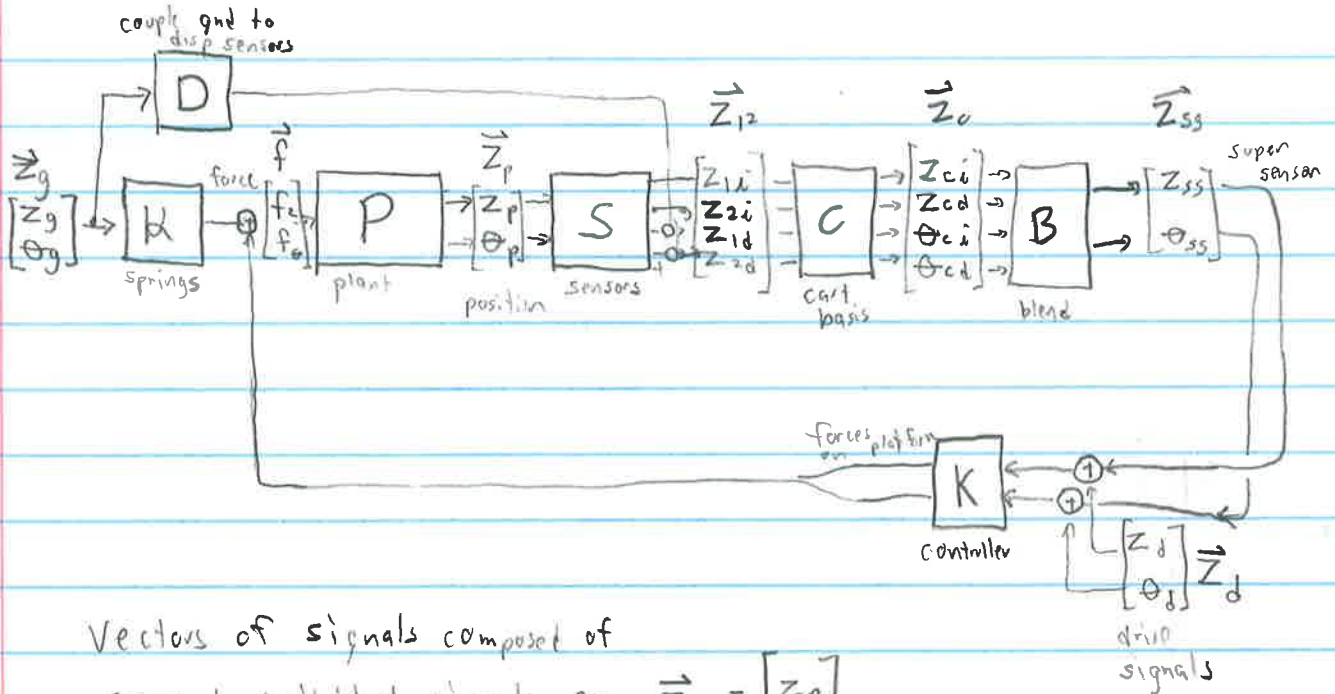 couple gnd to
disp sensors
D
Z⃗g
[Zg θg]
K
springs
force
f⃗
[fz fθ]
P
plant
Z⃗p
[Zp θp]
position
S
sensors
Z⃗12
[Z1i Z2i Z1d Z2d]
C
cart
basis
Z⃗c
[Zci Zcd θci θcd]
B
blend
Z⃗ss
[Zss θss]
super
sensor
forces platform
on
K
controller
[Zd θd] Z⃗d
drive
signals
Vectors of signals composed of